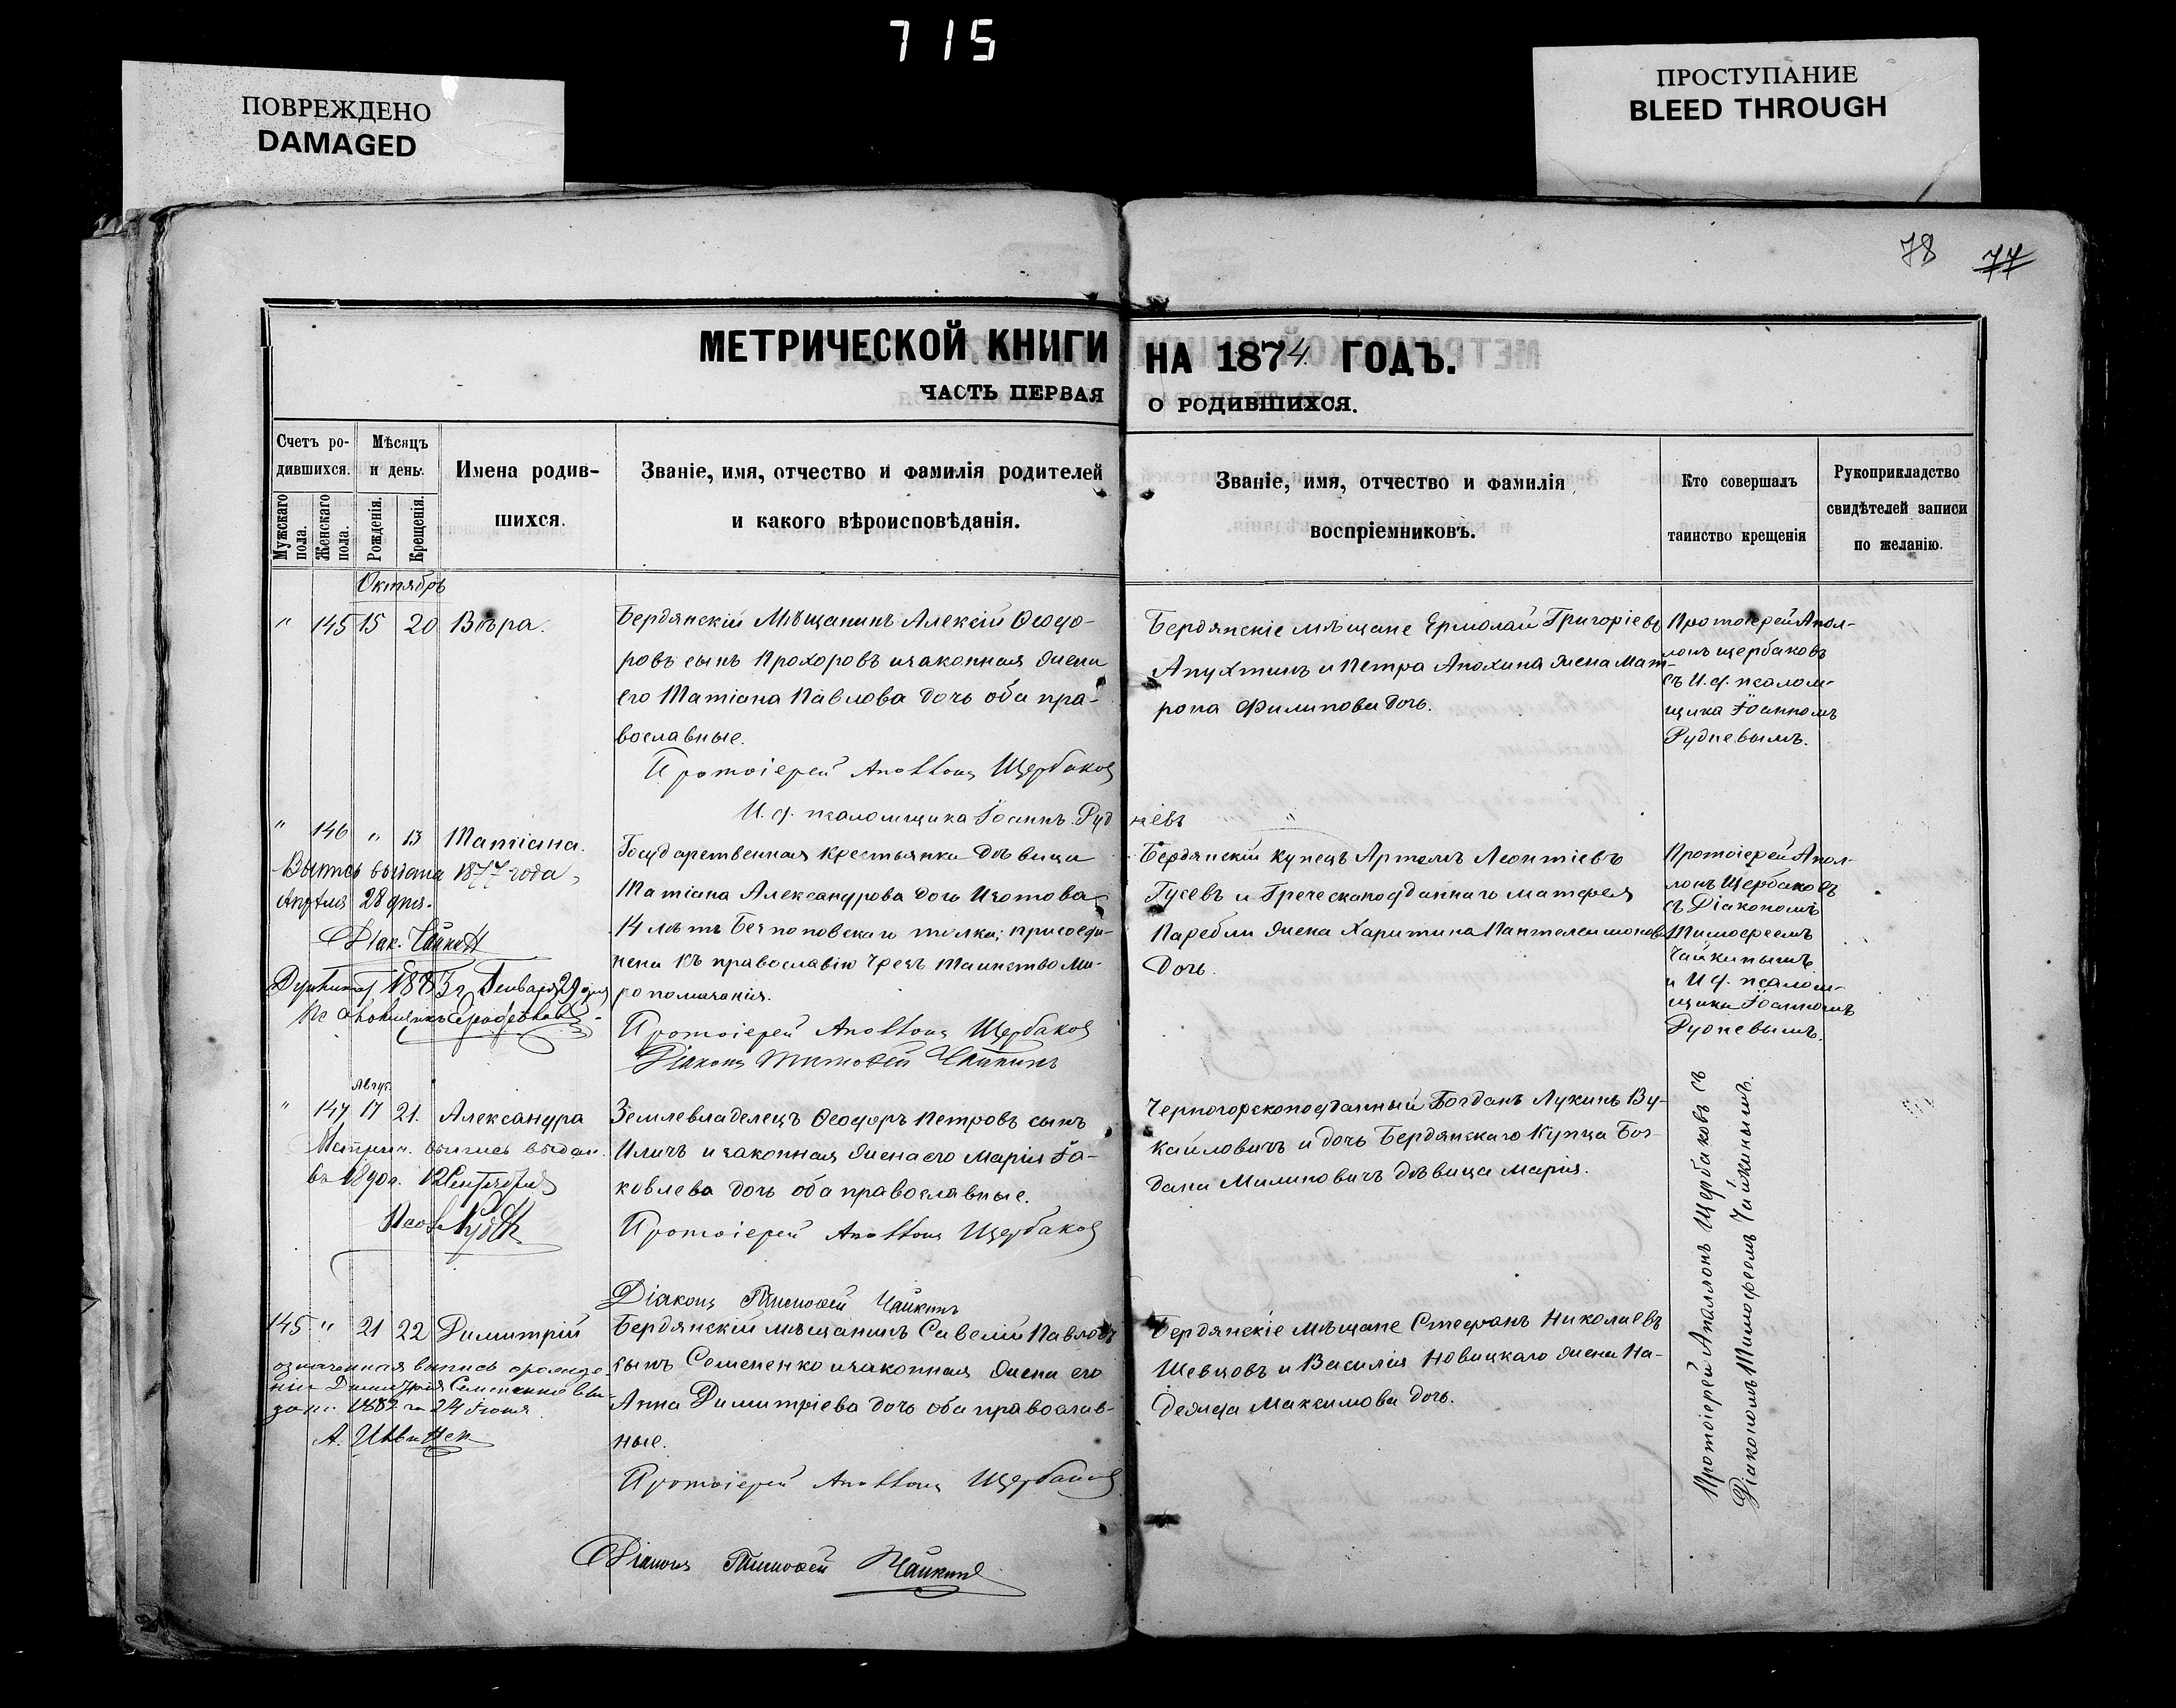 715
ПОВРЕЖДЕНО
DAMAGED
ПРОСТУПАНИЕ
BLEED THROUGH
78 77
МЕТРИЧЕСКОЙ КНИГИ НА 1874 ГОДЪ.
ЧАСТЬ ПЕРВАЯ О РОДИВШИХСЯ.
Счетъ ро-
дившихся.
Мужскаго пола.
Женскаго пола.
Мѣсяцъ
и день.
Рожденія.
Крещенія.
Имена родив-
шихся.
Званіе, имя, отчество и фамилія родителей
и какого вѣроисповѣданія.
Званіе, имя, отчество и фамилія
воспріемниковъ.
Кто совершалъ
таинство крещенія
Рукоприкладство
свидѣтелей записи
по желанію.
Октябрь
" 145 15 20 Вѣра.
Бердянскій Мѣщанинъ Алексій Ѳеодо-
ровъ сынъ Прохоровъ изаконная жена
его Татіана Павлова дочь оба пра-
вославные.
Протоіерей Аполлонъ Щербаковъ
И. д. псаломщика Іоаннъ Руд
невъ
Бердянскіе мѣщане Ермолай Григоріевъ
Апухтинъ и Петра Апохина жена Мат-
рона Филипова дочь.
Протоіерей Апол-
лонъ Щербаковъ
съ И. д. псалом-
щика Іоанномъ
Рудневымъ.
" 146 " 13 Татіана.
Выпись выдана 1877 года,
Апрѣля 28 дня.
Діак. Чайкин
1883 г. Января 29 дня
Государственная Крестьянка дѣвица
Татіана Александрова дочь Изотова
14 лѣтъ Безпоповскаго толка; присоеди-
нена къ православію чрезъ Таинство Ми-
ропомазанія.
Протоіерей Аполлонъ Щербаковъ
Діаконъ Тимофей Чайкинъ
Бердянскій купецъ Артемъ Леонтіевъ
Гусевъ и Греческоподданнаго Матфея
Паребли жена Харитина Пантелеимонова
Дочь.
Протоіерей Апол-
лонъ Щербаковъ
съ Діакономъ
Тимофеемъ
Чайкинымъ
и И д. псалом-
щика Іоанномъ
Рудневымъ.
Авгус.
" 147 17 21. Александра
Метрич. выпись выдан.
въ 1890 г. 12 Сентября
Землевладелецъ Ѳеодоръ Петровъ сынъ
Иличъ и законная жена его Марія Іа-
ковлева дочь оба православные.
Протоіерей Аполлонъ Щербаковъ
Діаконъ Тимофей Чайкинъ
Черногорскоподданный Богданъ Лукинъ Ву-
кайловичъ и дочь Бердянскаго Купца Бог-
дана Милиновичъ дѣвица Марія.
Протоіерей Апаллонъ Щербаковъ съ
Діакономъ Тимофеемъ Чайкинымъ.
145 " 21 22 Димитрій
означенная выпись о рожде-
ніи Димитрія Семененко вы-
дана 1882 г. 24 Іюня
Бердянскій мѣщанинъ Савелій Павловъ
сынъ Семененко изаконная жена его
Анна Димитріева дочь оба православ-
ные.
Протоіерей Аполлонъ Щербаковъ
Діаконъ Тимофей Чайкинъ
Бердянскіе мѣщане Стефанъ Николаевъ
Шевцовъ и Василія Новицкаго жена На-
дежда Максимова дочь.